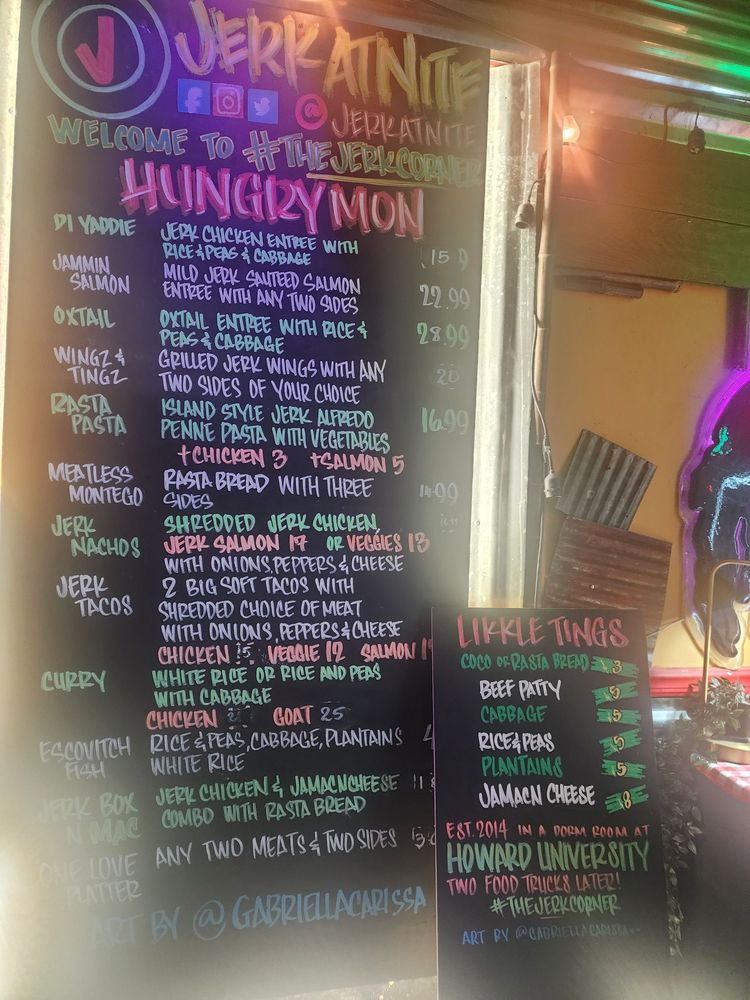 JERKATNITE
@JERKATNITE
WELCOME TO #THEJERKCORNER
HUNGRY MON
DI YADDIE JERK CHICKEN ENTREE WITH
RICE & PEAS & CABBAGE 15
JAMMIN SALMON MILD JERK SAUTEED SALMON
ENTREE WITH ANY TWO SIDES 22.99
OXTAIL OXTAIL ENTREE WITH RICE &
PEAS & CABBAGE 28.99
WINGZ & TINGZ GRILLED JERK WINGS WITH ANY
TWO SIDES OF YOUR CHOICE 20
RASTA PASTA ISLAND STYLE JERK ALFREDO 16.99
PENNE PASTA WITH VEGETABLES
+CHICKEN 3 +SALMON 5
MEATLESS MONTEGO RASTA BREAD WITH THREE
SIDES 14.99
JERK NACHOS SHREDDED JERK CHICKEN,
JERK SALMON 17 OR VEGGIES 13
WITH ONIONS, PEPPERS & CHEESE
JERK TACOS 2 BIG SOFT TACOS WITH
SHREDDED CHOICE OF MEAT
WITH ONIONS, PEPPERS & CHEESE
CHICKEN 15 VEGGIE 12 SALMON
CURRY WHITE RICE OR RICE AND PEAS
WITH CABBAGE
CHICKEN GOAT 25
ESCOVITCH FISH RICE & PEAS, CABBAGE, PLANTAINS
WHITE RICE
JERK BOX N MAC JERK CHICKEN & JAMACNCHEESE
COMBO WITH RASTA BREAD
ONE LOVE PLATTER ANY TWO MEATS & TWO SIDES
ART BY @GABRIELLACARISSA
LIKKLE TINGS
COCO OR RASTA BREAD 3
BEEF PATTY 5
CABBAGE 5
RICE & PEAS 5
PLANTAINS 5
JAMACN CHEESE 8
EST. 2014 IN A DORM ROOM AT
HOWARD UNIVERSITY
TWO FOOD TRUCKS LATER!
#THEJERKCORNER
ART BY @GABRIELLACARISSA